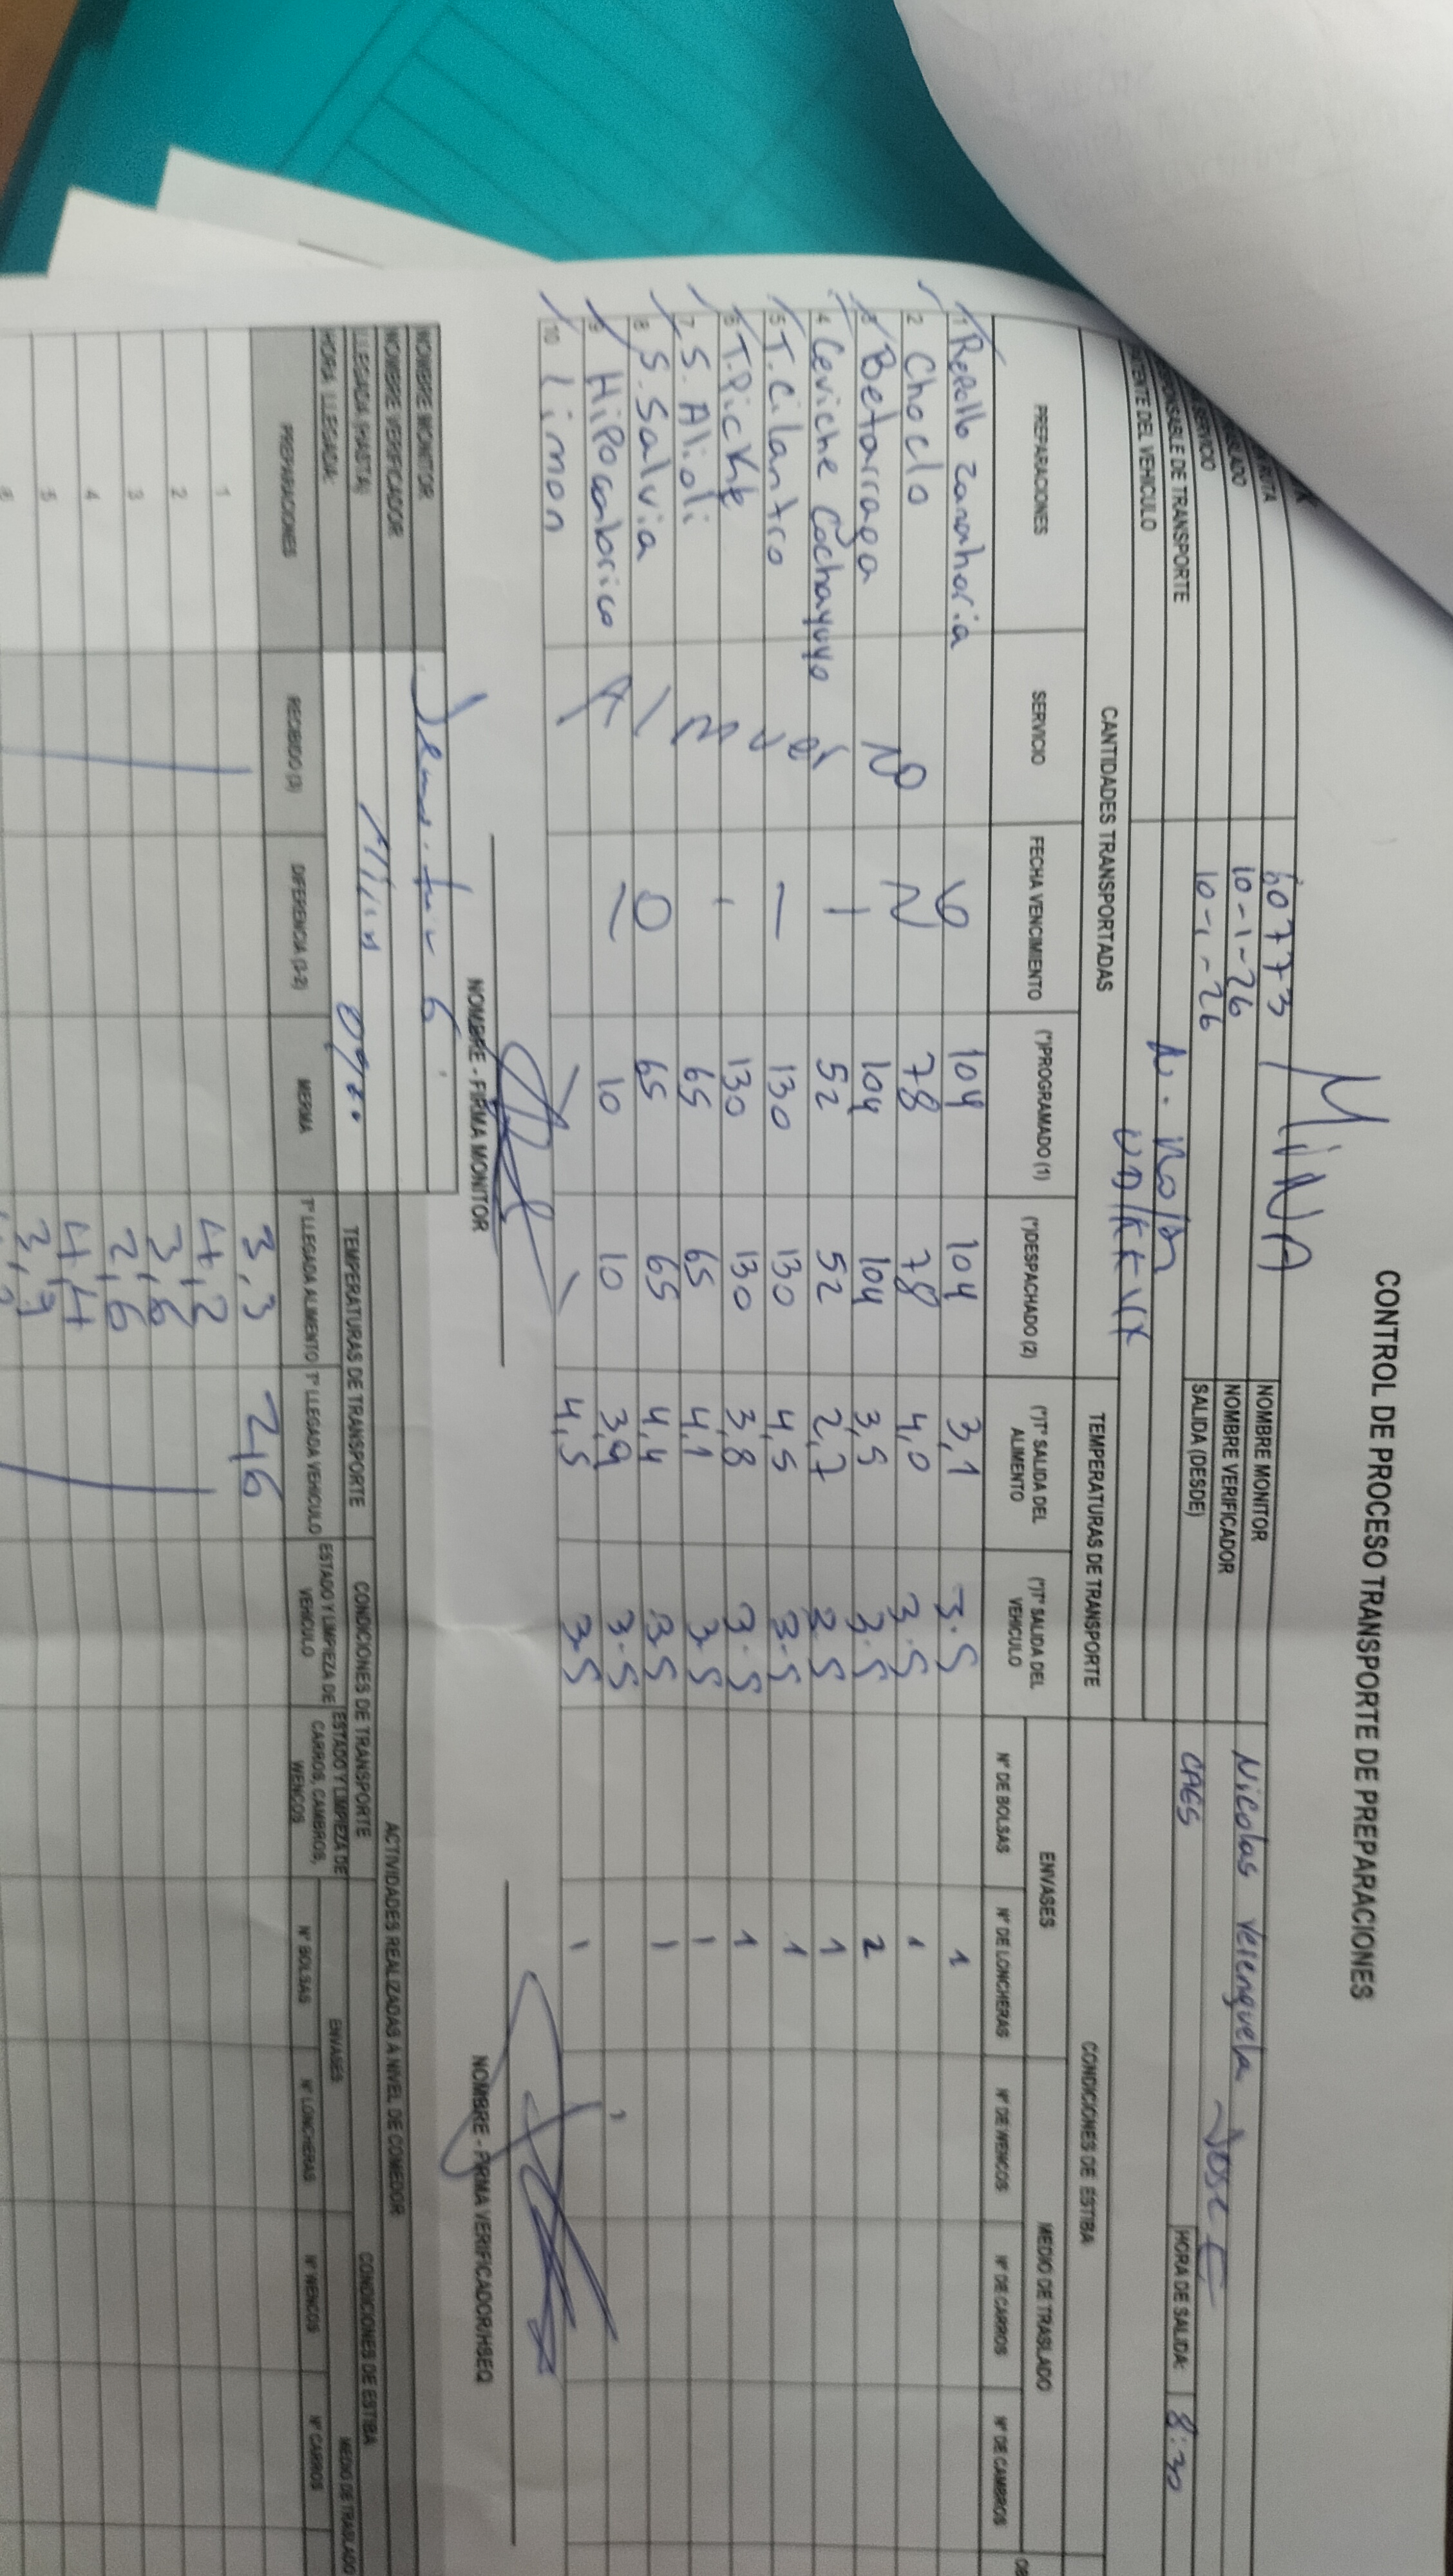 CONTROL DE PROCESO TRANSPORTE DE PREPARACIONES
60773 / MINA
NOMBRE MONITOR Nicolas
10-1-26
NOMBRE VERIFICADOR Jose
SERVICIO 10-1-26
SALIDA (DESDE) CAES HORA DE SALIDA: 8:30
DE TRANSPORTE
DEL VEHICULO
CANTIDADES TRANSPORTADAS TEMPERATURAS DE TRANSPORTE CONDICIONES DE ESTIBA
ENVASES MEDIO DE TRASLADO
PREPARACIONES SERVICIO FECHA VENCIMIENTO (*)PROGRAMADO (1) (*)DESPACHADO (2) (*)T° SALIDA DEL ALIMENTO (*)T° SALIDA DEL VEHICULO N° DE BOLSAS N° DE LONCHERAS N° DE WENCOS N° DE CARROS N° DE CAMBROS
1 Repollo Zanahoria 104 104 3,1 3.5 1
2 Choclo 78 78 4,0 3.5 1
3 Betarraga 104 104 3,5 3.5 2
4 Ceviche Cochayuyo 52 52 2,7 3.5 1
5 T. Cilantro 130 130 4,5 3.5 1
6 T. Pickle 130 130 3,8 3.5 1
7 S. Alioli 65 65 4,1 3.5 1
8 S. Salvia 65 65 4,4 3.5 1
9 Hipocalorico 10 10 3,9 3.5 1
10 Limon 4,5 3.5 1
NOMBRE - FIRMA MONITOR NOMBRE - FIRMA VERIFICADOR/HSEQ
NOMBRE MONITOR
NOMBRE VERIFICADOR
LLEGADA (HASTA)
HORA LLEGADA:
ACTIVIDADES REALIZADAS A NIVEL DE COMEDOR
TEMPERATURAS DE TRANSPORTE CONDICIONES DE TRANSPORTE CONDICIONES DE ESTIBA
ENVASES MEDIO DE TRASLADO
PREPARACIONES RECIBIDO (3) DIFERENCIA (3-2) MERMA T° LLEGADA ALIMENTO T° LLEGADA VEHICULO ESTADO Y LIMPIEZA DE VEHICULO ESTADO Y LIMPIEZA DE CARROS, CAMBROS, WENCOS N° BOLSAS N° LONCHERAS N° WENCOS N° CARROS
1 3,3 2,6
2 4,2
3 3,6
4 2,6
5 4,4
6 3,7